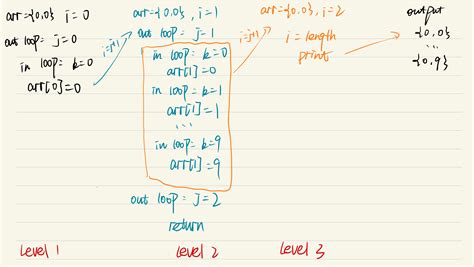 arr={0,0} i=0
out loop: j=0
in loop: k=0
arr[0]=0
i=j+1
arr={0,0}, i=1
out loop: j=1
in loop: k=0
arr[1]=0
in loop: k=1
arr[1]=1
...
in loop: k=9
arr[1]=9
out loop: j=2
return
i=j+1
arr={0,0}, i=2
i=length
print
output
{0,0}
...
{0,9}
Level 1
Level 2
Level 3